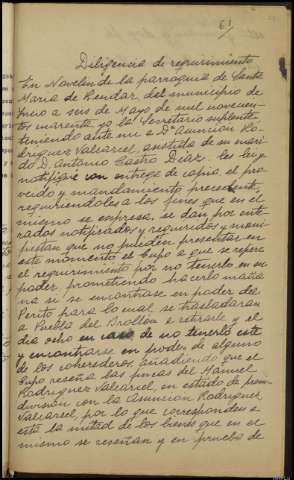 61
Diligencia de requerimiento
En Novelin de la parroquia de Santa
Maria de Rendar del municipio de
Incio a seis de Mayo de mil novecien-
tos cuarenta yo el Secretario suplente
teniendo ante mi a Dª Asuncion Ro-
driguez Valcarcel, asistida de su mari-
do D. Antonio Castro Diaz les ley y
notifiqué con entrega de copia el pro-
veido y mandamiento precedente,
requiriendoles a los fines que en el
mismo se expresa, se dan por ente-
rados notificados y requeridos y mani-
fiestan que no pueden presentar en
este momento el Cupo a que se refiere
el requerimiento por no tenerlo en su
poder, prometiendo hacerlo maña
na si se encontrase en poder del
Perito para lo cual se trasladaran
a Puebla del Brollon a retirarle y el
dia ocho en caso de no tenerlo este
y encontrarse en poder de alguno
de los coherederos, añadiendo que el
Cupo reseña las fincas del Manuel
Rodriguez Valcarcel, en estado de proin-
division con la Asuncion Rodriguez
Valcarcel, por lo que corresponden a
esta la mitad de los bienes que en el
mismo se reseñan y en prueba de